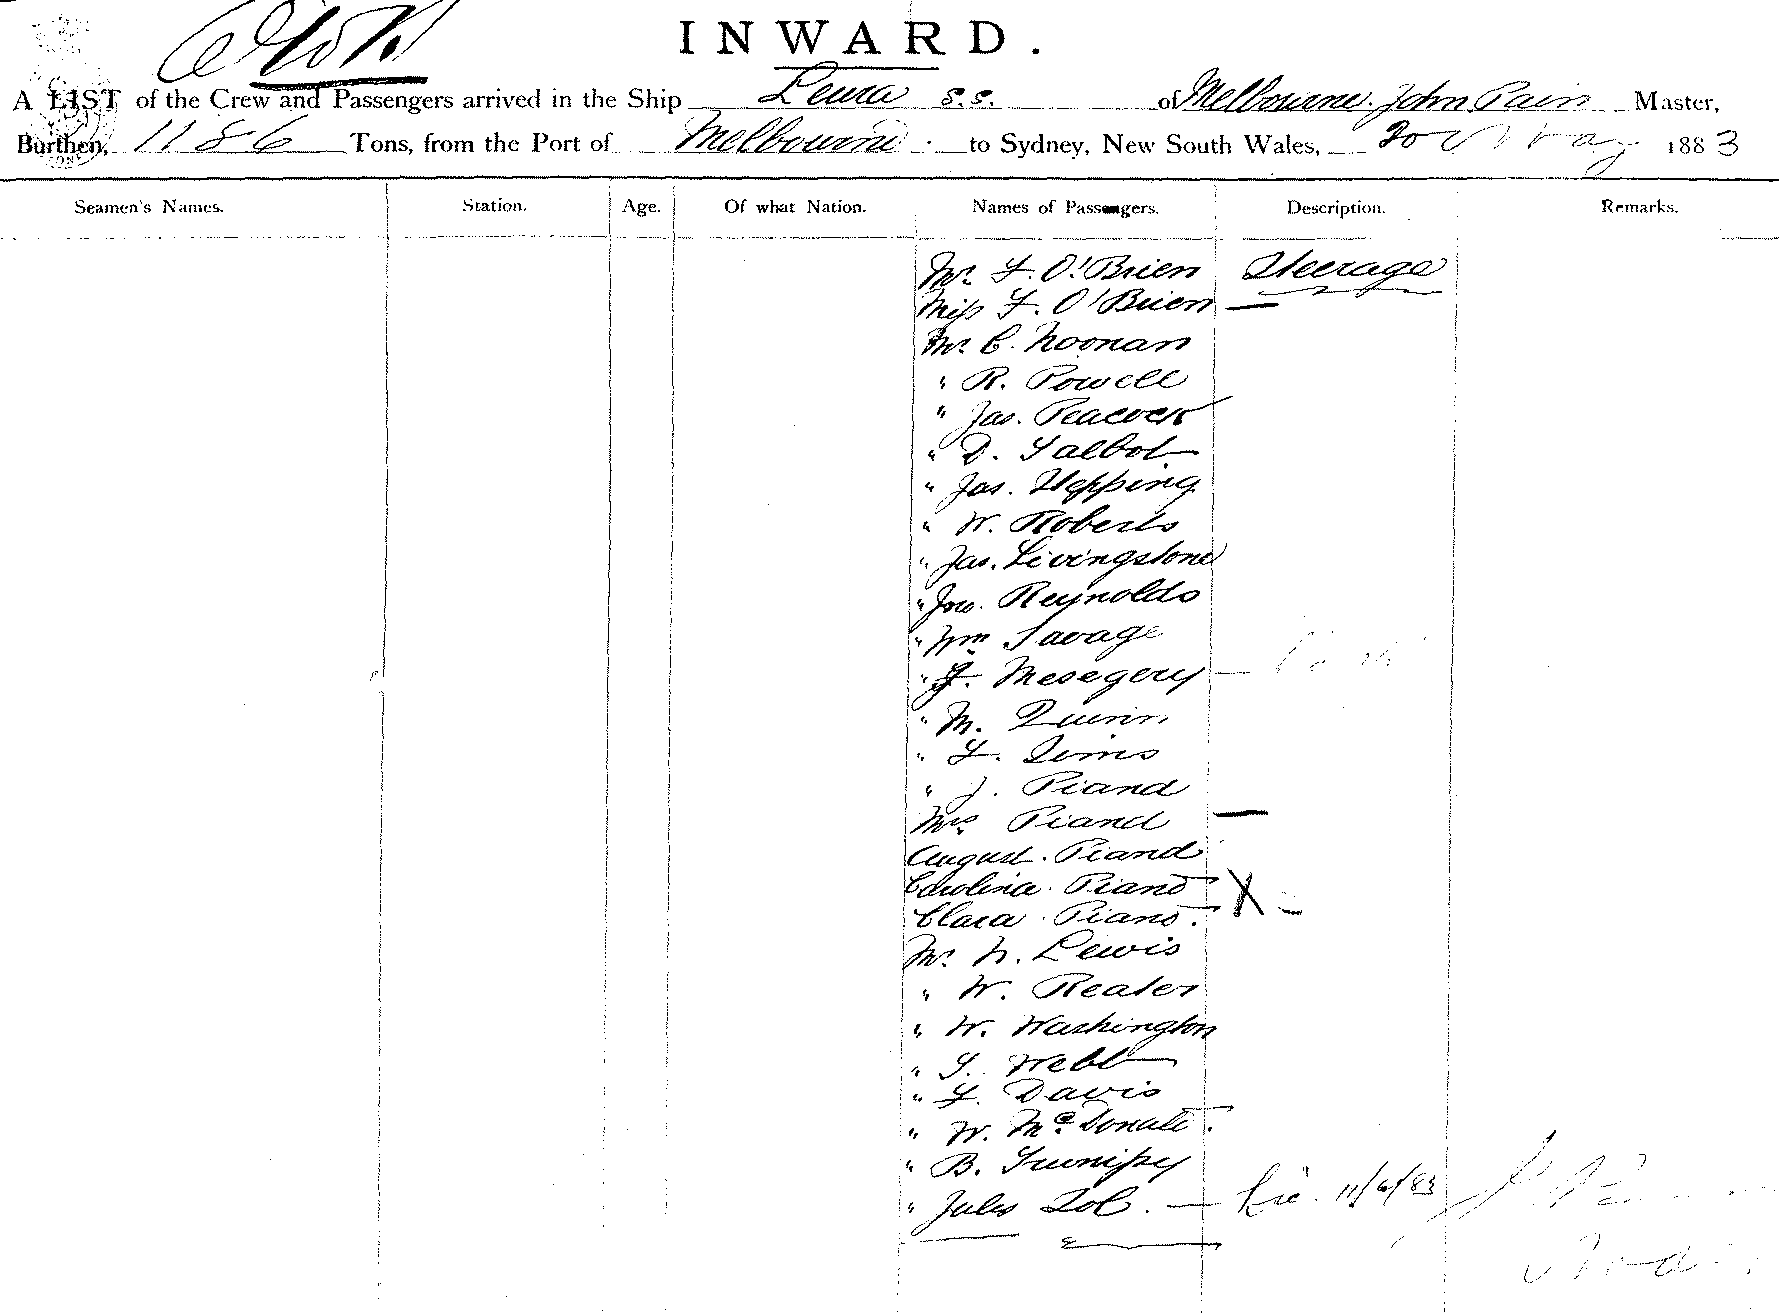 INWARD.
A LIST of the Crew and Passengers arrived in the Ship Leura s.s. of Melbourne. John Pain Master,
Burthen, 1186 Tons, from the Port of Melbourne. to Sydney, New South Wales, 20 May 1883
Seamen's Names. Station. Age. Of what Nation. Names of Passengers. Description. Remarks.
Mr. F. O'Brien Steerage
Miss F. O'Brien —
Mr. C. Noonan
" R. Powell
" Jas. Peacock
" D. Talbot
" Jas. Hepping
" W. Roberts
" Jas. Livingstone
" Jno. Reynolds
" Wm Savage
" J. Mesegery —
" M. Quinn
" F. Sims
" J. Piand
Mrs. Piand —
August. Piand
Carolina. Piand X -
Clara. Piand.
Mr. N. Lewis
" W. Reater
" W. Washington
" S. Webb
" F. Davis
" W. McDonald.
" B.
" Jules — 11/6/83